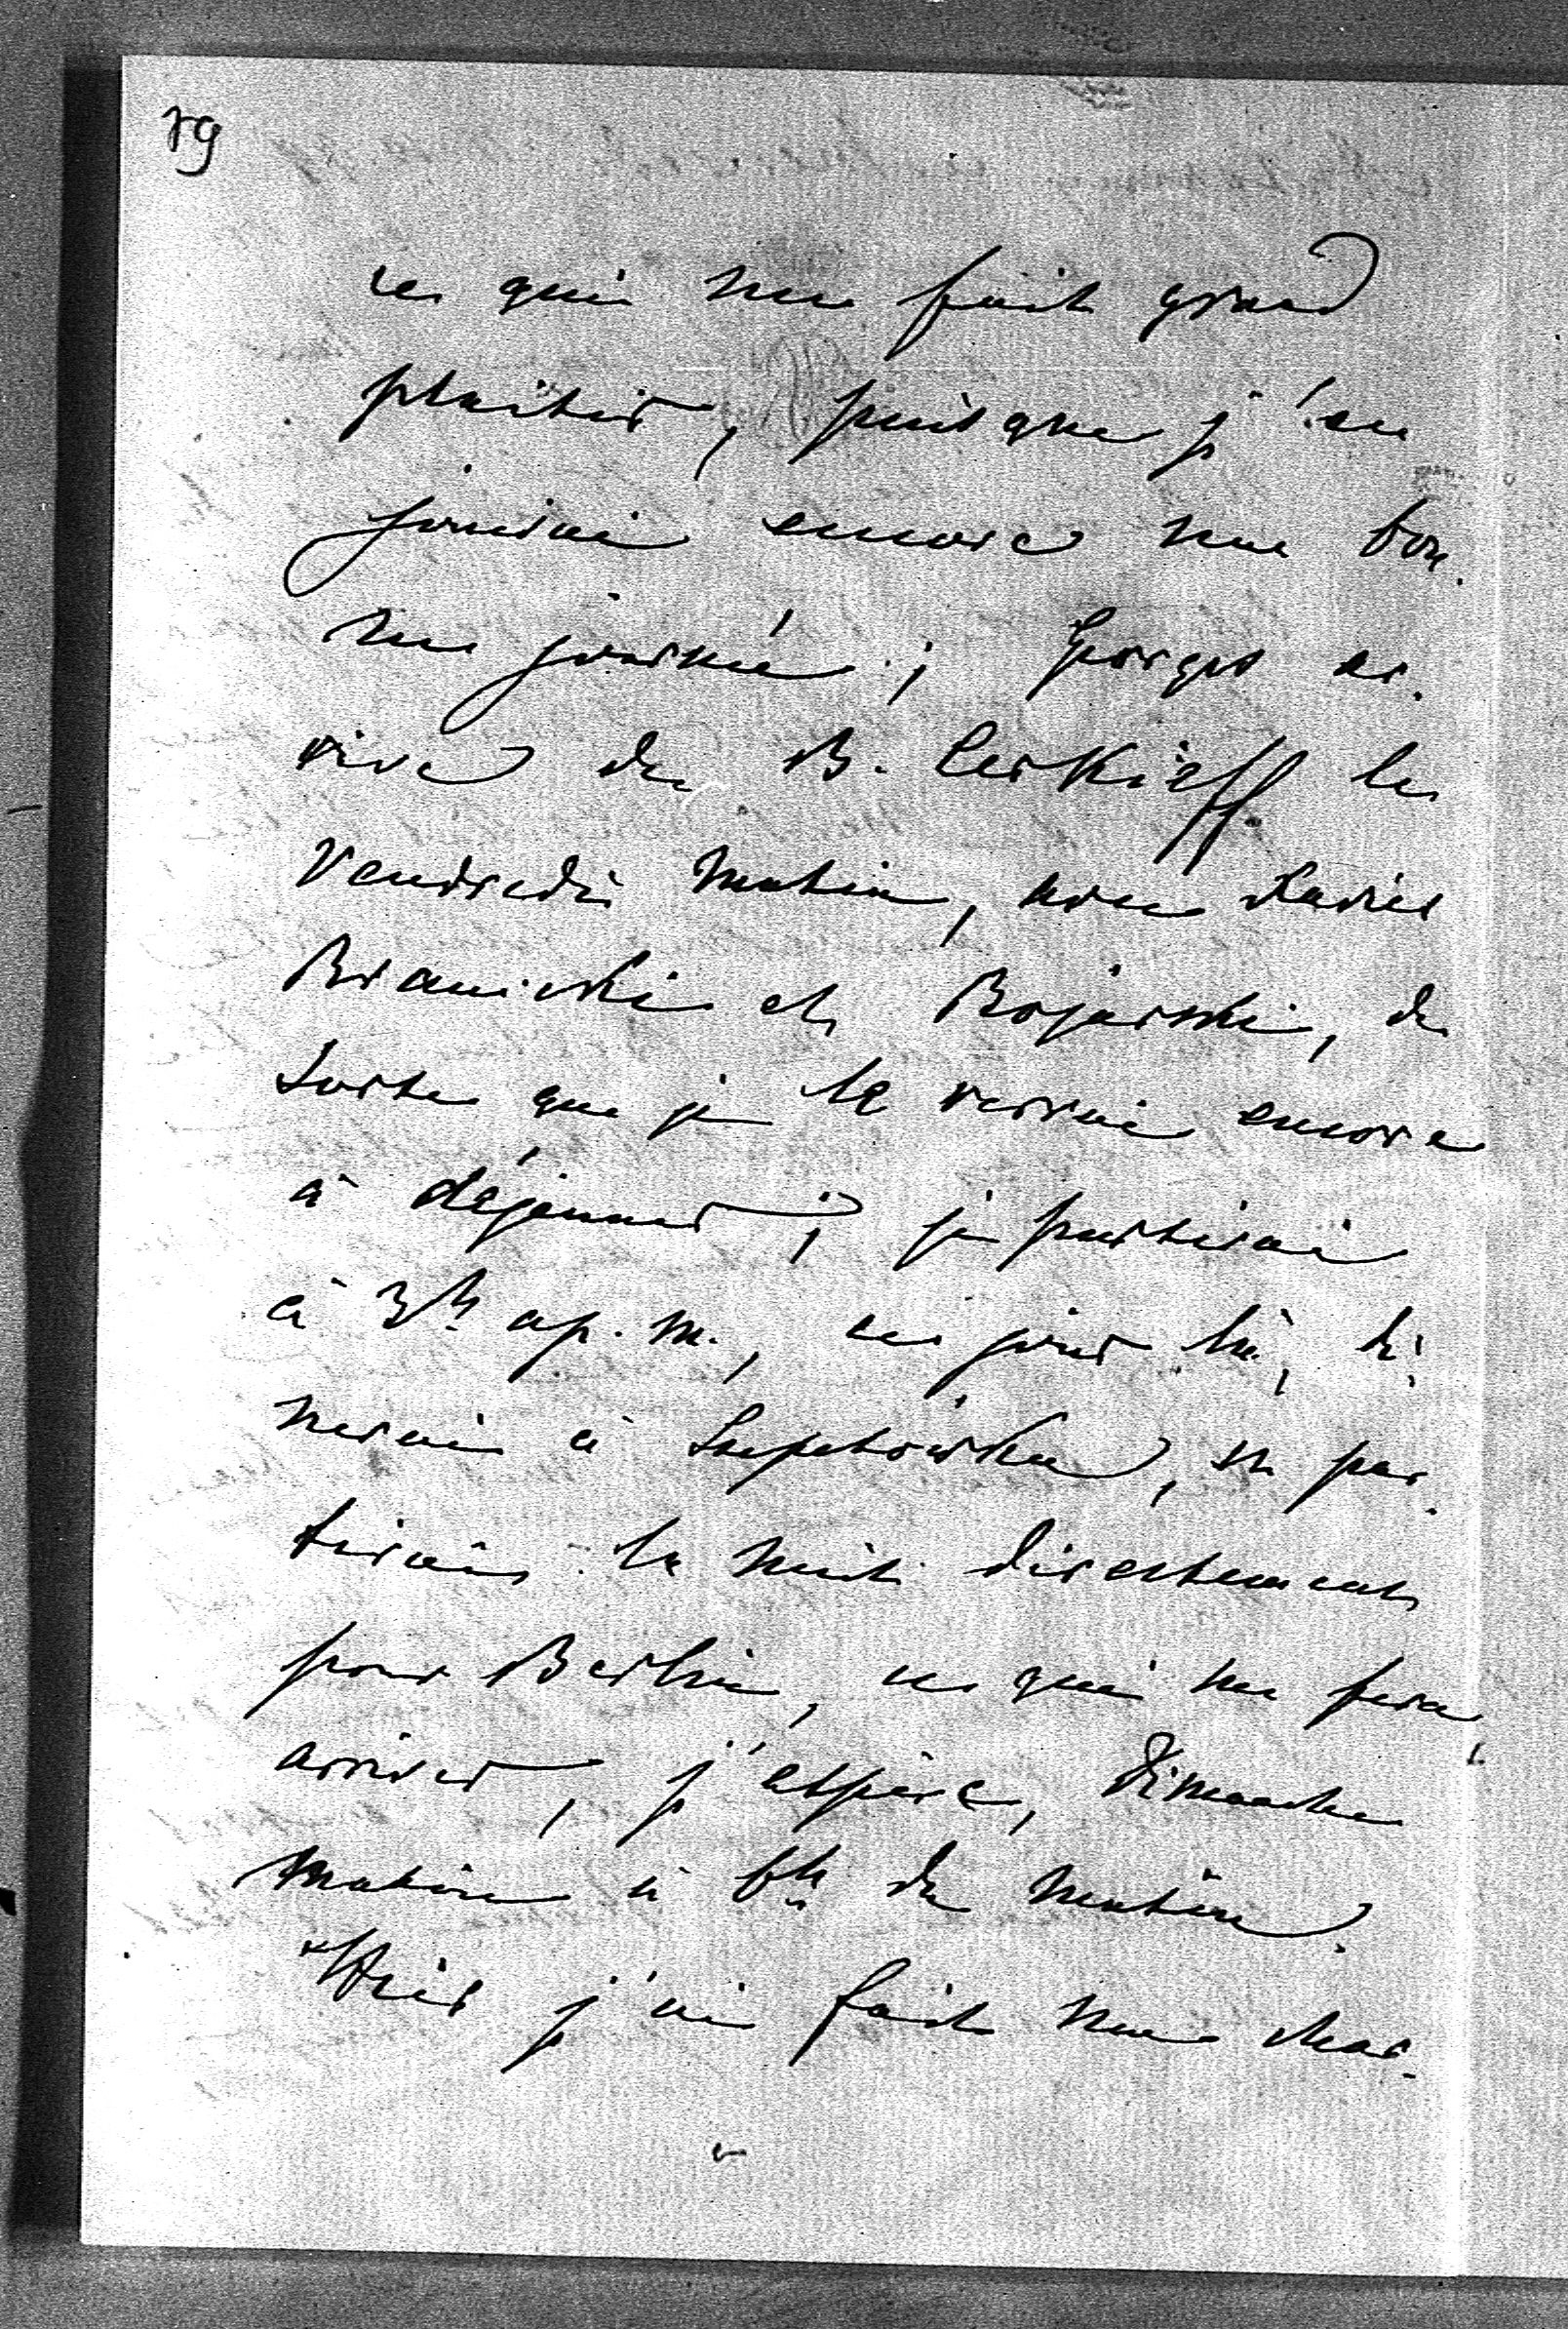 19
ce qui me fait grand
plaisir, puisque j'en
jouirai encore une bon-
ne journée; Georges ar-
rive de B. Cerkieff le
Vendredi matin, avec Xavier
Branicki et Bojarski, de
sorte que je le verrai encore
à déjeuner; je partirai
à 3h ap. m., ce jour là, dî-
nerai à Szepetówka, en par-
tirai la nuit directement
pour Berlin, ce qui me fera
arriver, j'espère, Dimanche
matin à 6h du matin.
Hier j'ai fait une char-